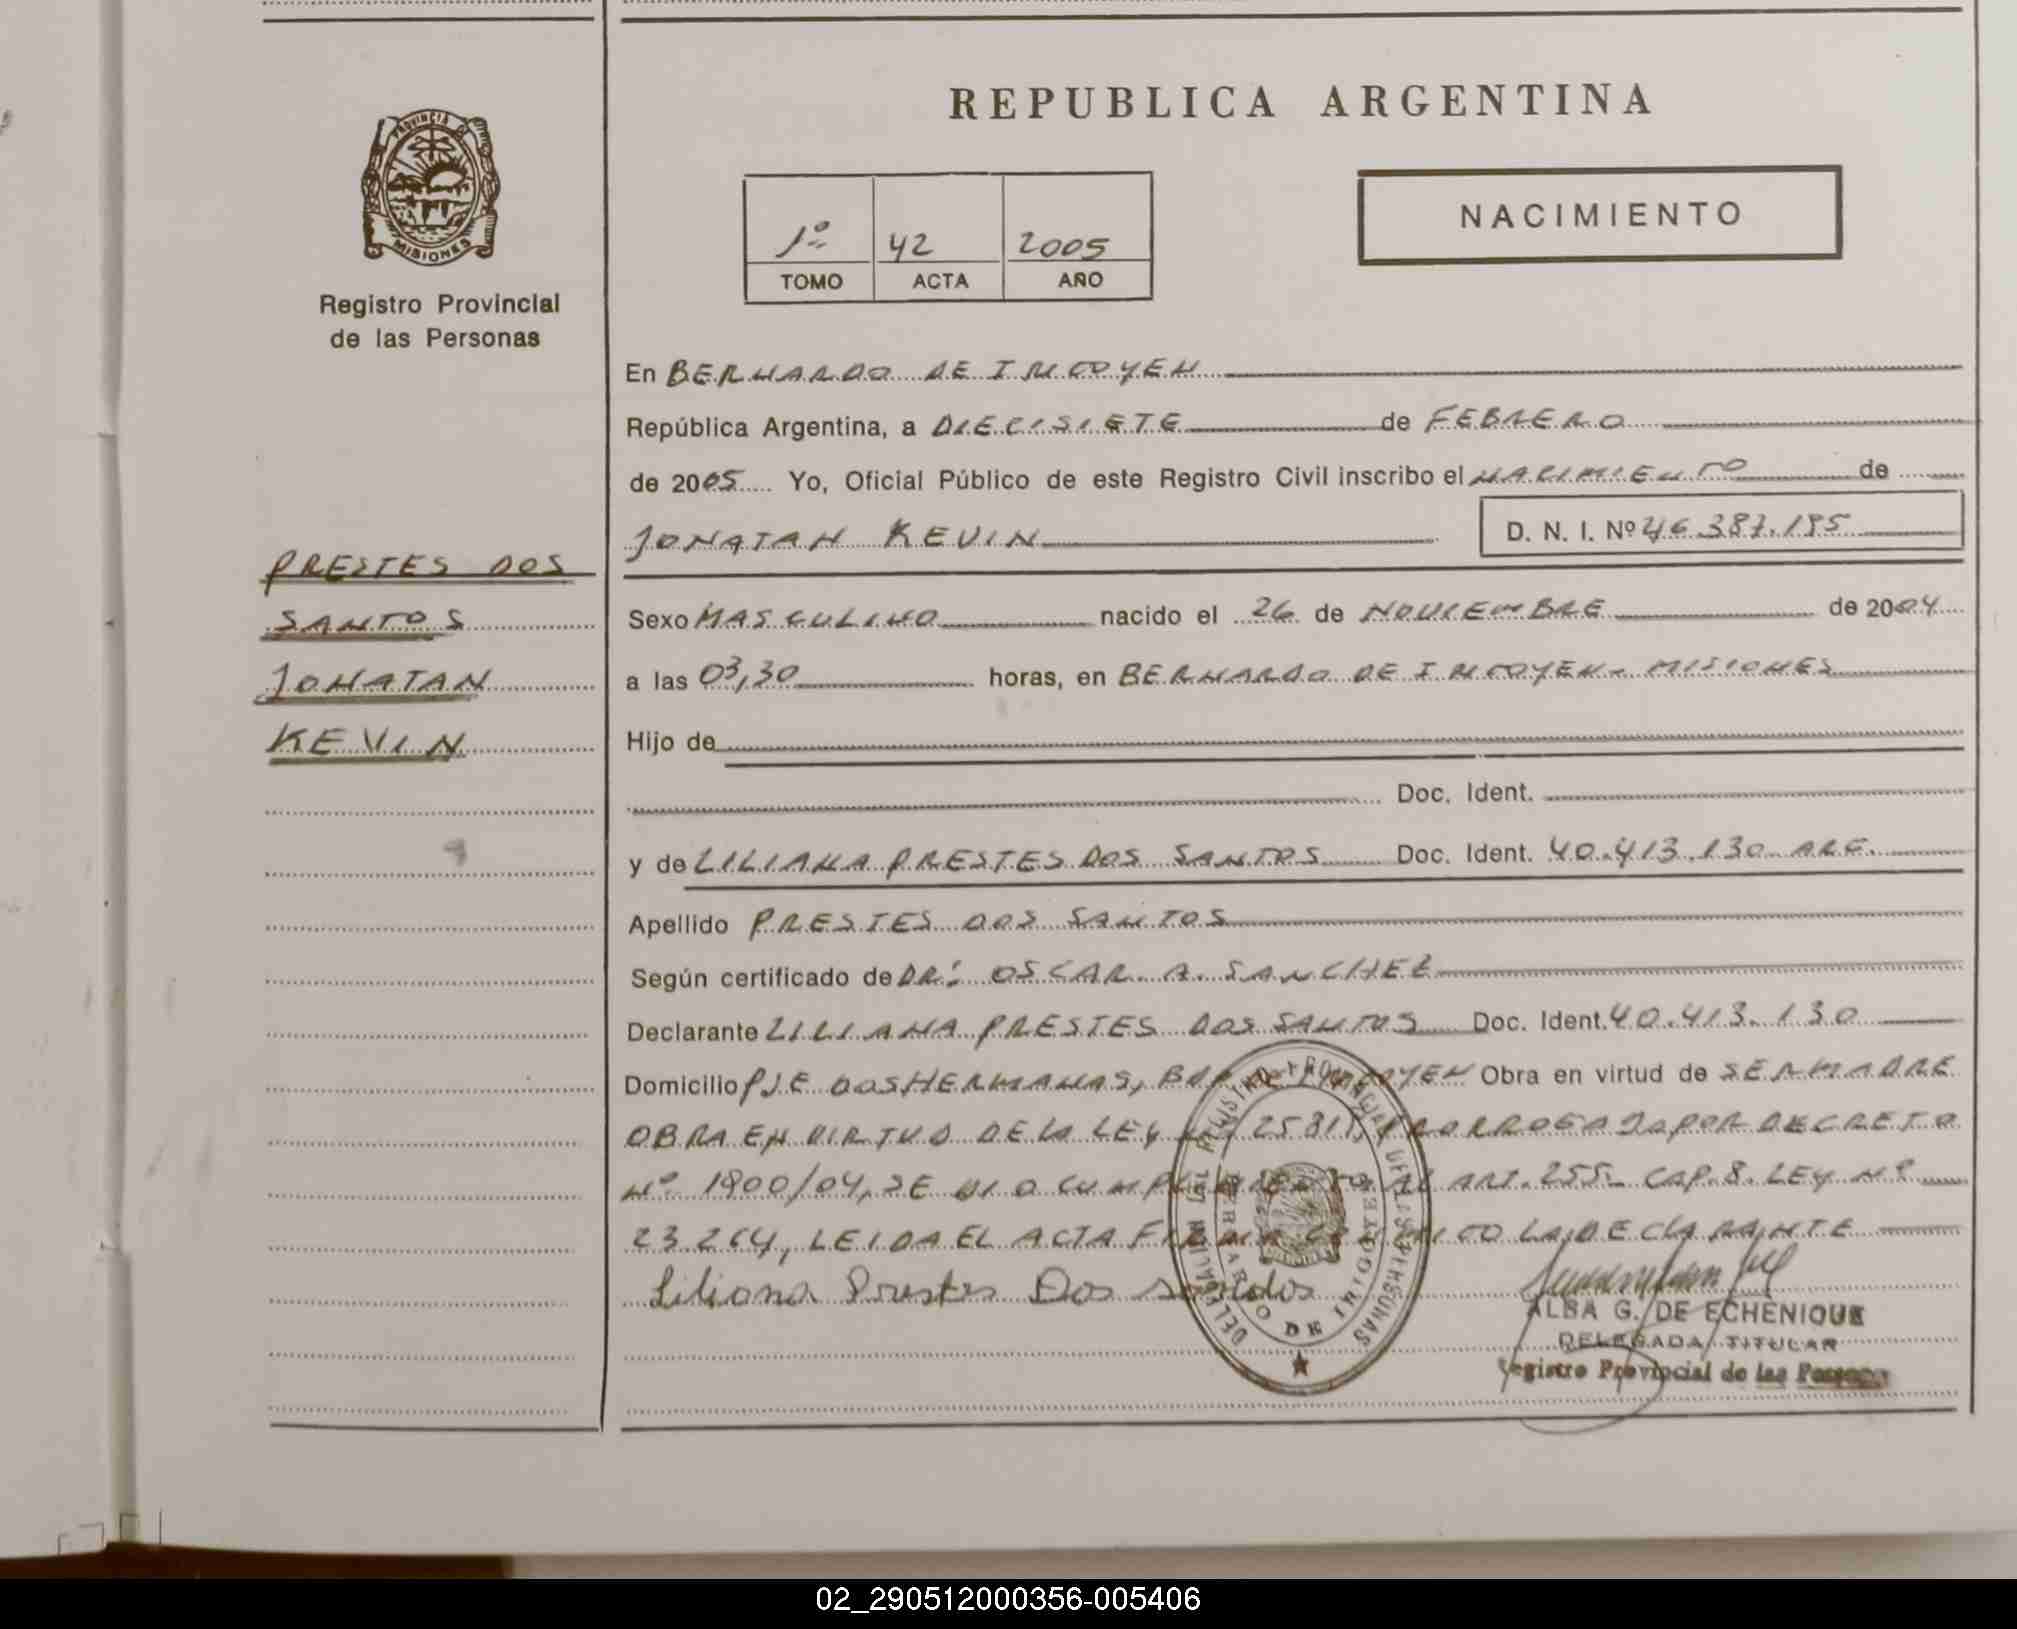 PROVINCIA DE
MISIONES
Registro Provincial
de las Personas
PRESTES DOS
SANTOS
JONATAN
KEVIN
REPUBLICA ARGENTINA
1º 42 2005
TOMO ACTA AÑO
NACIMIENTO
En BERNARDO DE IRIGOYEN
República Argentina, a DIECISIETE de FEBRERO
de 2005 Yo, Oficial Público de este Registro Civil inscribo el NACIMIENTO de
JONATAN KEVIN D. N. I. Nº 46.387.195
Sexo MASCULINO nacido el 26 de NOVIEMBRE de 2004
a las 03,30 horas, en BERNARDO DE IRIGOYEN - MISIONES
Hijo de
Doc. Ident.
y de LILIANA PRESTES DOS SANTOS Doc. Ident. 40.413.130 ARG.
Apellido PRESTES DOS SANTOS
Según certificado de DR: OSCAR A. SANCHEZ
Declarante LILIANA PRESTES DOS SANTOS Doc. Ident. 40.413.130
Domicilio PJE DOS HERMANAS, BDO DE IRIGOYEN Obra en virtud de SER MADRE
OBRA EN VIRTUD DE LA LEY Nº 25819, PRORROGADA POR DECRETO
Nº 1900/04, SE DIO CUMPLIMIENTO AL ART. 255- CAP. 8. LEY Nº
23.264, LEIDA EL ACTA FIRMA CONMIGO LA DECLARANTE
Liliana Prestes Dos Santos
ALBA G. DE ECHENIQUE
DELEGADA TITULAR
Registro Provincial de las Personas
REGISTRO PROVINCIAL DE LAS PERSONAS
BERNARDO DE IRIGOYEN
02_290512000356-005406